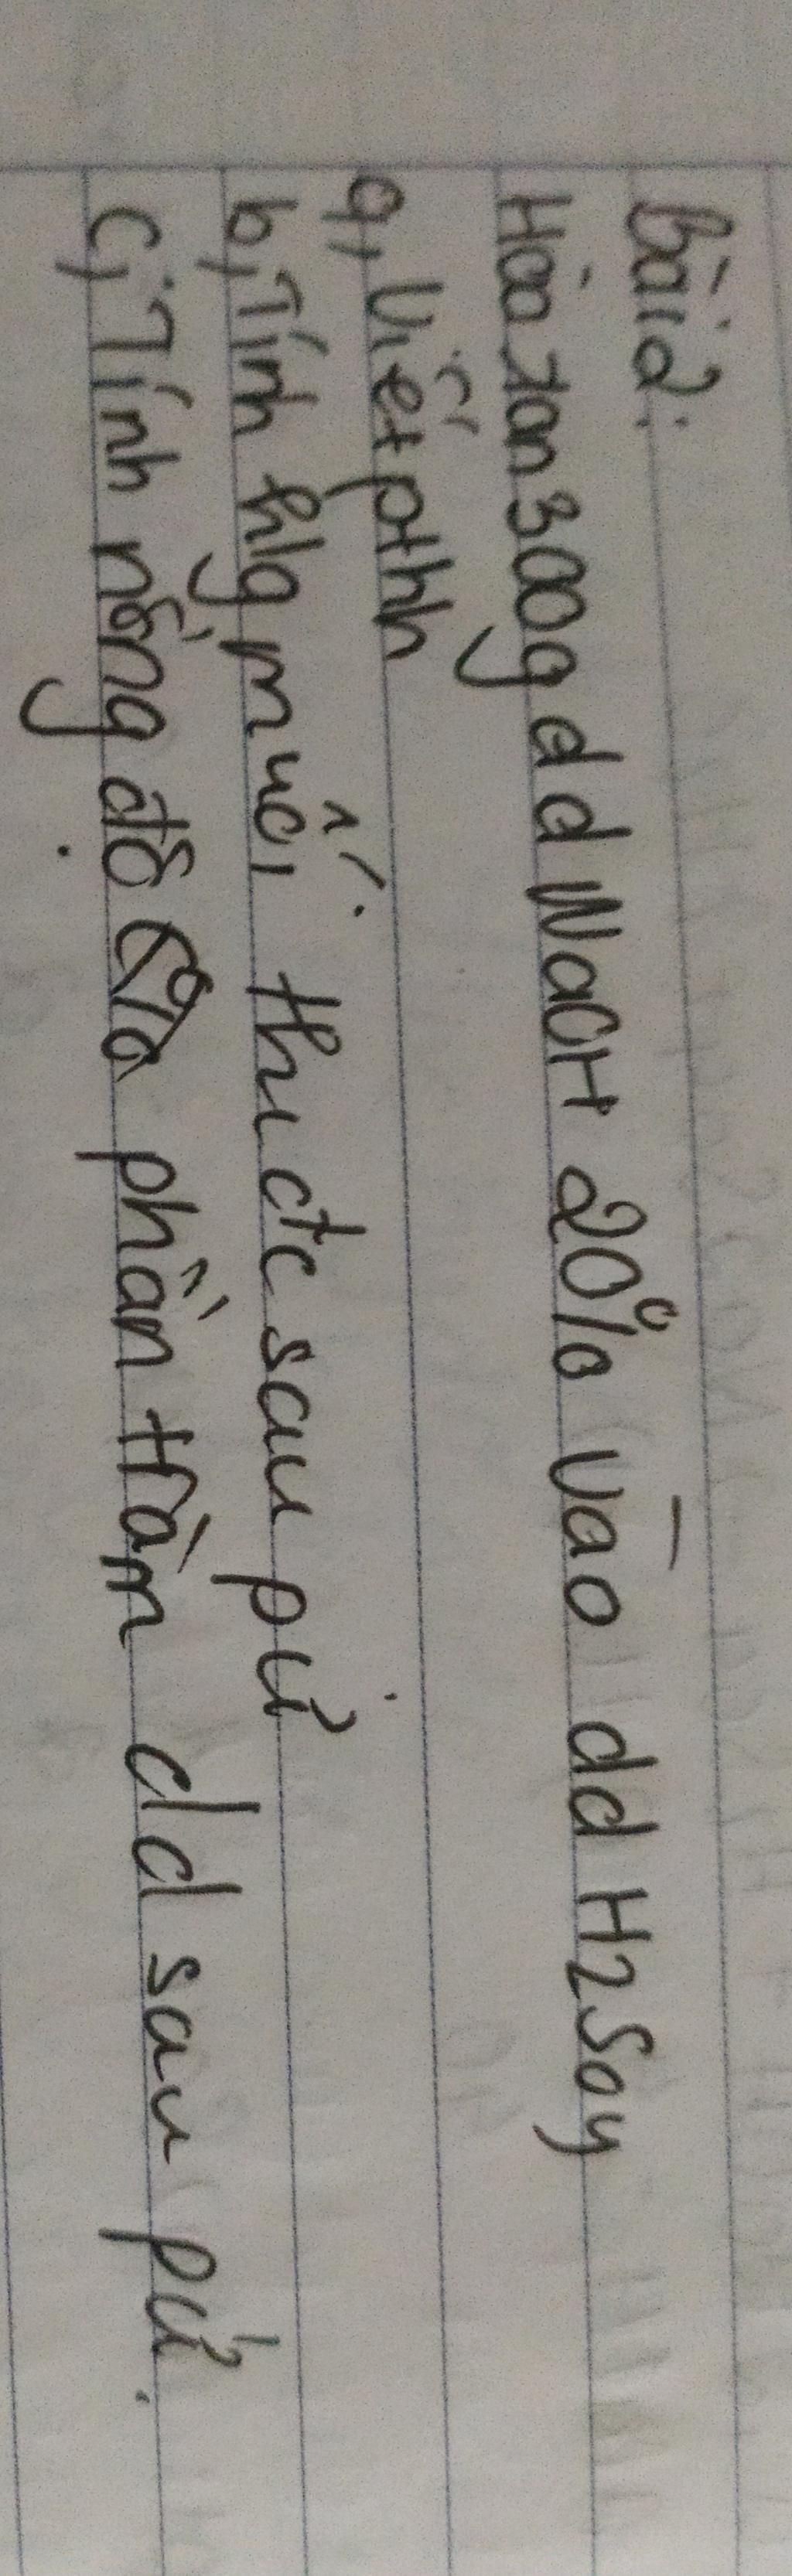 Bài 2:
Hòa tan 300g dd NaOH 20% vào dd H2SO4
a, Viết pthh
b, Tính klg muối thu đc sau pứ
c, Tính nồng độ phần trăm dd sau pứ.